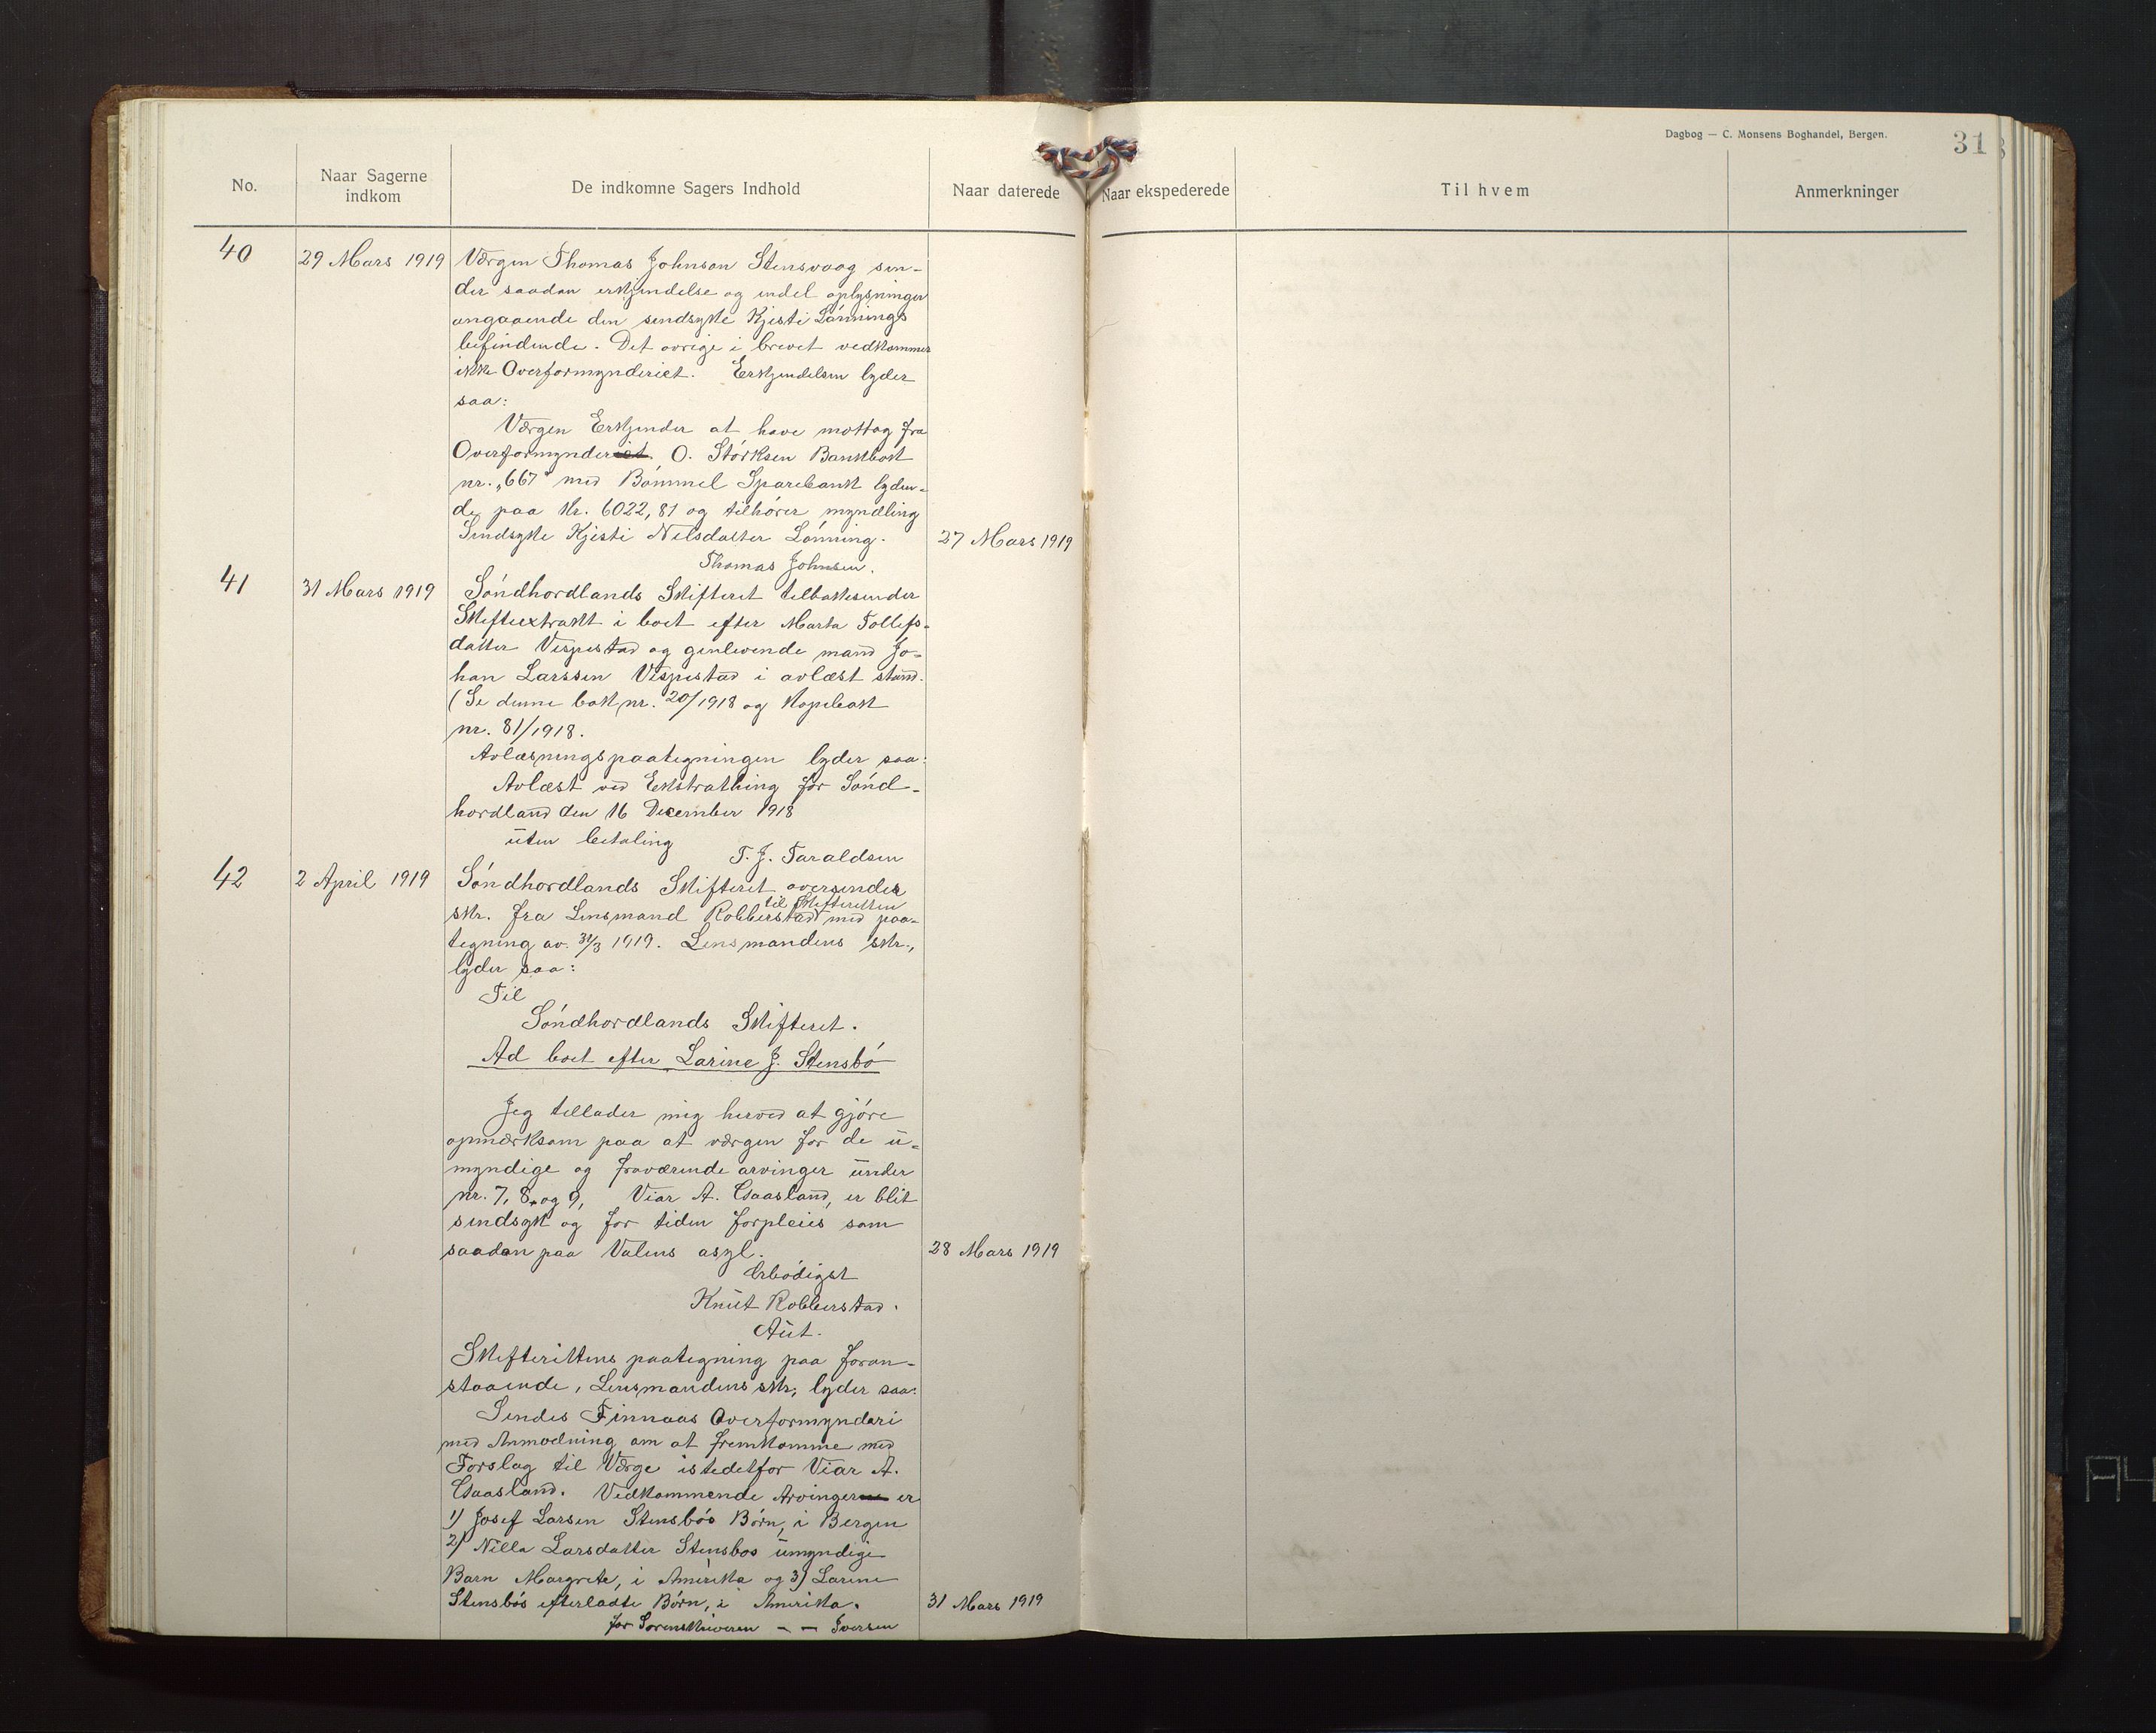 Dagbog — C. Monsens Boghandel, Bergen.
31
No.
Naar Sagerne indkom
De indkomne Sagers Indhold
Naar daterede
Naar ekspederede
Til hvem
Anmerkninger
40
29 Mars 1919
Værgen Thomas Johnson Stensvaag sen-
der saadan erkjendelse og endel oplysninger
angaaende den sindsyke Kjesti Lønnings
befindende. Det øvrige i brevet vedkommer
ikke Overformynderiet. Erkjendelsen lyder
saa:
Værgen Erkjender at have mottag fra
Overformynderiet. O. Størksen Bankbok
nr. „667" med Bømmel Sparebank lyden-
de paa kr. 6022,81 og tilhører myndling
Sindsyke Kjesti Nilsdatter Lønning.
27 Mars 1919
Thomas Johnsen.
41
31 Mars 1919
Søndhordlands Skifteret tilbakesender
Skifteextrakt i boet efter Marta Tollefs-
datter Vespestad og genlevende mand Jo-
han Larssen Vespestad i avlæst stand.
(Se denne bok nr. 20/1918 og Kopibok
nr. 81/1918.
Avlæsningspaategningen lyder saa:
Avlæst ved Ekstrathing for Sønd-
hordland den 16 December 1918
uten betaling
T. J. Taraldsen
42
2 April 1919
Søndhordlands Skifteret oversender
til Skifteretten
skr. fra Lensmand Robberstad med paa-
tegning av 31/3 1919. Lensmandens skr.,
lyder saa:
Til
Søndhordlands Skifteret.
Ad boet efter Larine J. Stensbø
Jeg tillader mig herved at gjøre
opmærksom paa at værgen for de u-
myndige og fraværende arvinger under
nr. 7, 8. og 9, Viar A. Gaasland, er blit
sindsyk og for tiden forpleies som
saadan paa Valens asyl.
28 Mars 1919
Erbødigst
Knut Robberstad.
Aut.
Skifterettens paategning paa foran-
staaende, Lensmandens skr, lyder saa:
Sendes Finnaas Overformynderi
med Anmodning om at fremkomme med
Forslag til Værge istedetfor Viar A.
Gaasland. Vedkommende Arvingerne er
1) Josef Larsen Stensbøs Børn, i Bergen
2) Nilla Larsdatter Stensbøs umyndige
Barn Margrete, i Amerika og 3) Larine
Stensbøs efterladte Børn, i Amerika.
31 Mars 1919
for Sorenskriveren — — Iversen